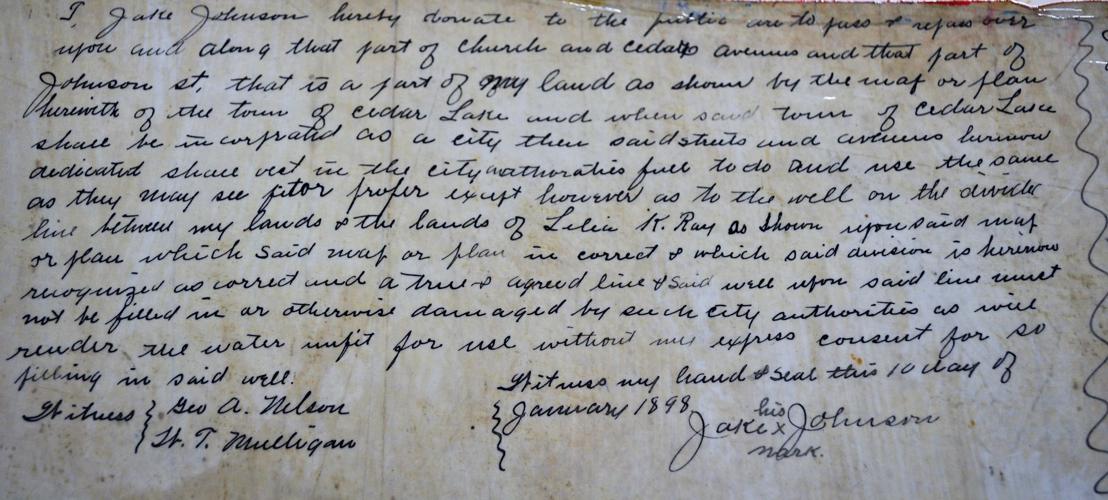 I, Jake Johnson hereby donate to the public are to pass & repass over
upon and along that part of Church and cedar avenues and that part of
Johnson st, that is a part of my land as shown by the map or plan
herewith of the town of cedar Lake and when said town of cedar Lake
shall be incorprated as a city then said streets and avenues herenow
dedicated shall vest in the city authoraties full to do and use the same
as they may see fit or prefer except however as to the well on the divide
line between my lands & the lands of Lelia K. Ray as shown upon said map
or plan which said map or plan in correct & which said division is herenow
recognized as correct and a true & agreed line & said well upon said line must
not be filled in or otherwise damaged by such city authorities as will
render the water unfit for use without my express consent for so
filling in said well.
Witness my hand & seal this 10 day of
January 1898
Witness Geo A. Nelson
W. T. Mulligan
his
Jake x Johnson
mark.